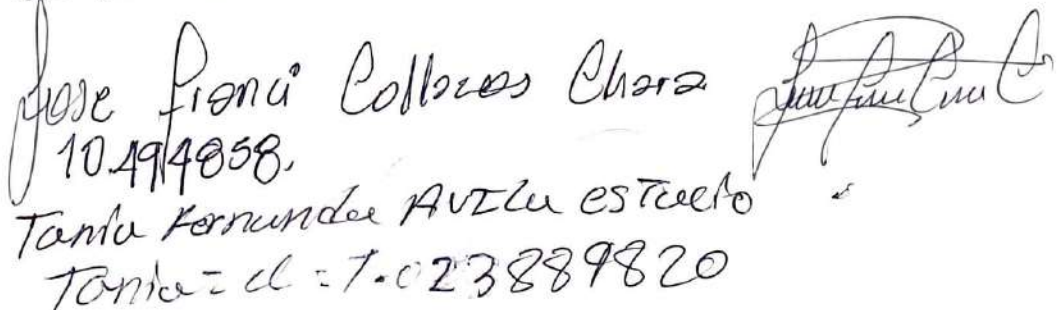 Jose Franci Collazos Chara
10.494858.
Tania Fernanda AVILa
Tania = c : 1.023889820